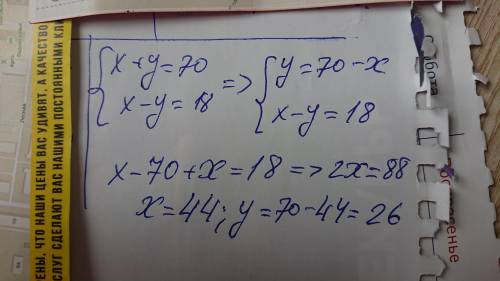 {x+y=70 => {y=70-x
x-y=18 x-y=18
x-70+x=18=>2x=88
x=44; y=70-44=26
ЕНЫ, ЧТО НАШИ ЦЕНЫ ВАС УДИВЯТ, А КАЧЕСТВО
СЛУГ СДЕЛАЮТ ВАС НАШИМИ ПОСТОЯННЫМИ КЛИ
Суббота